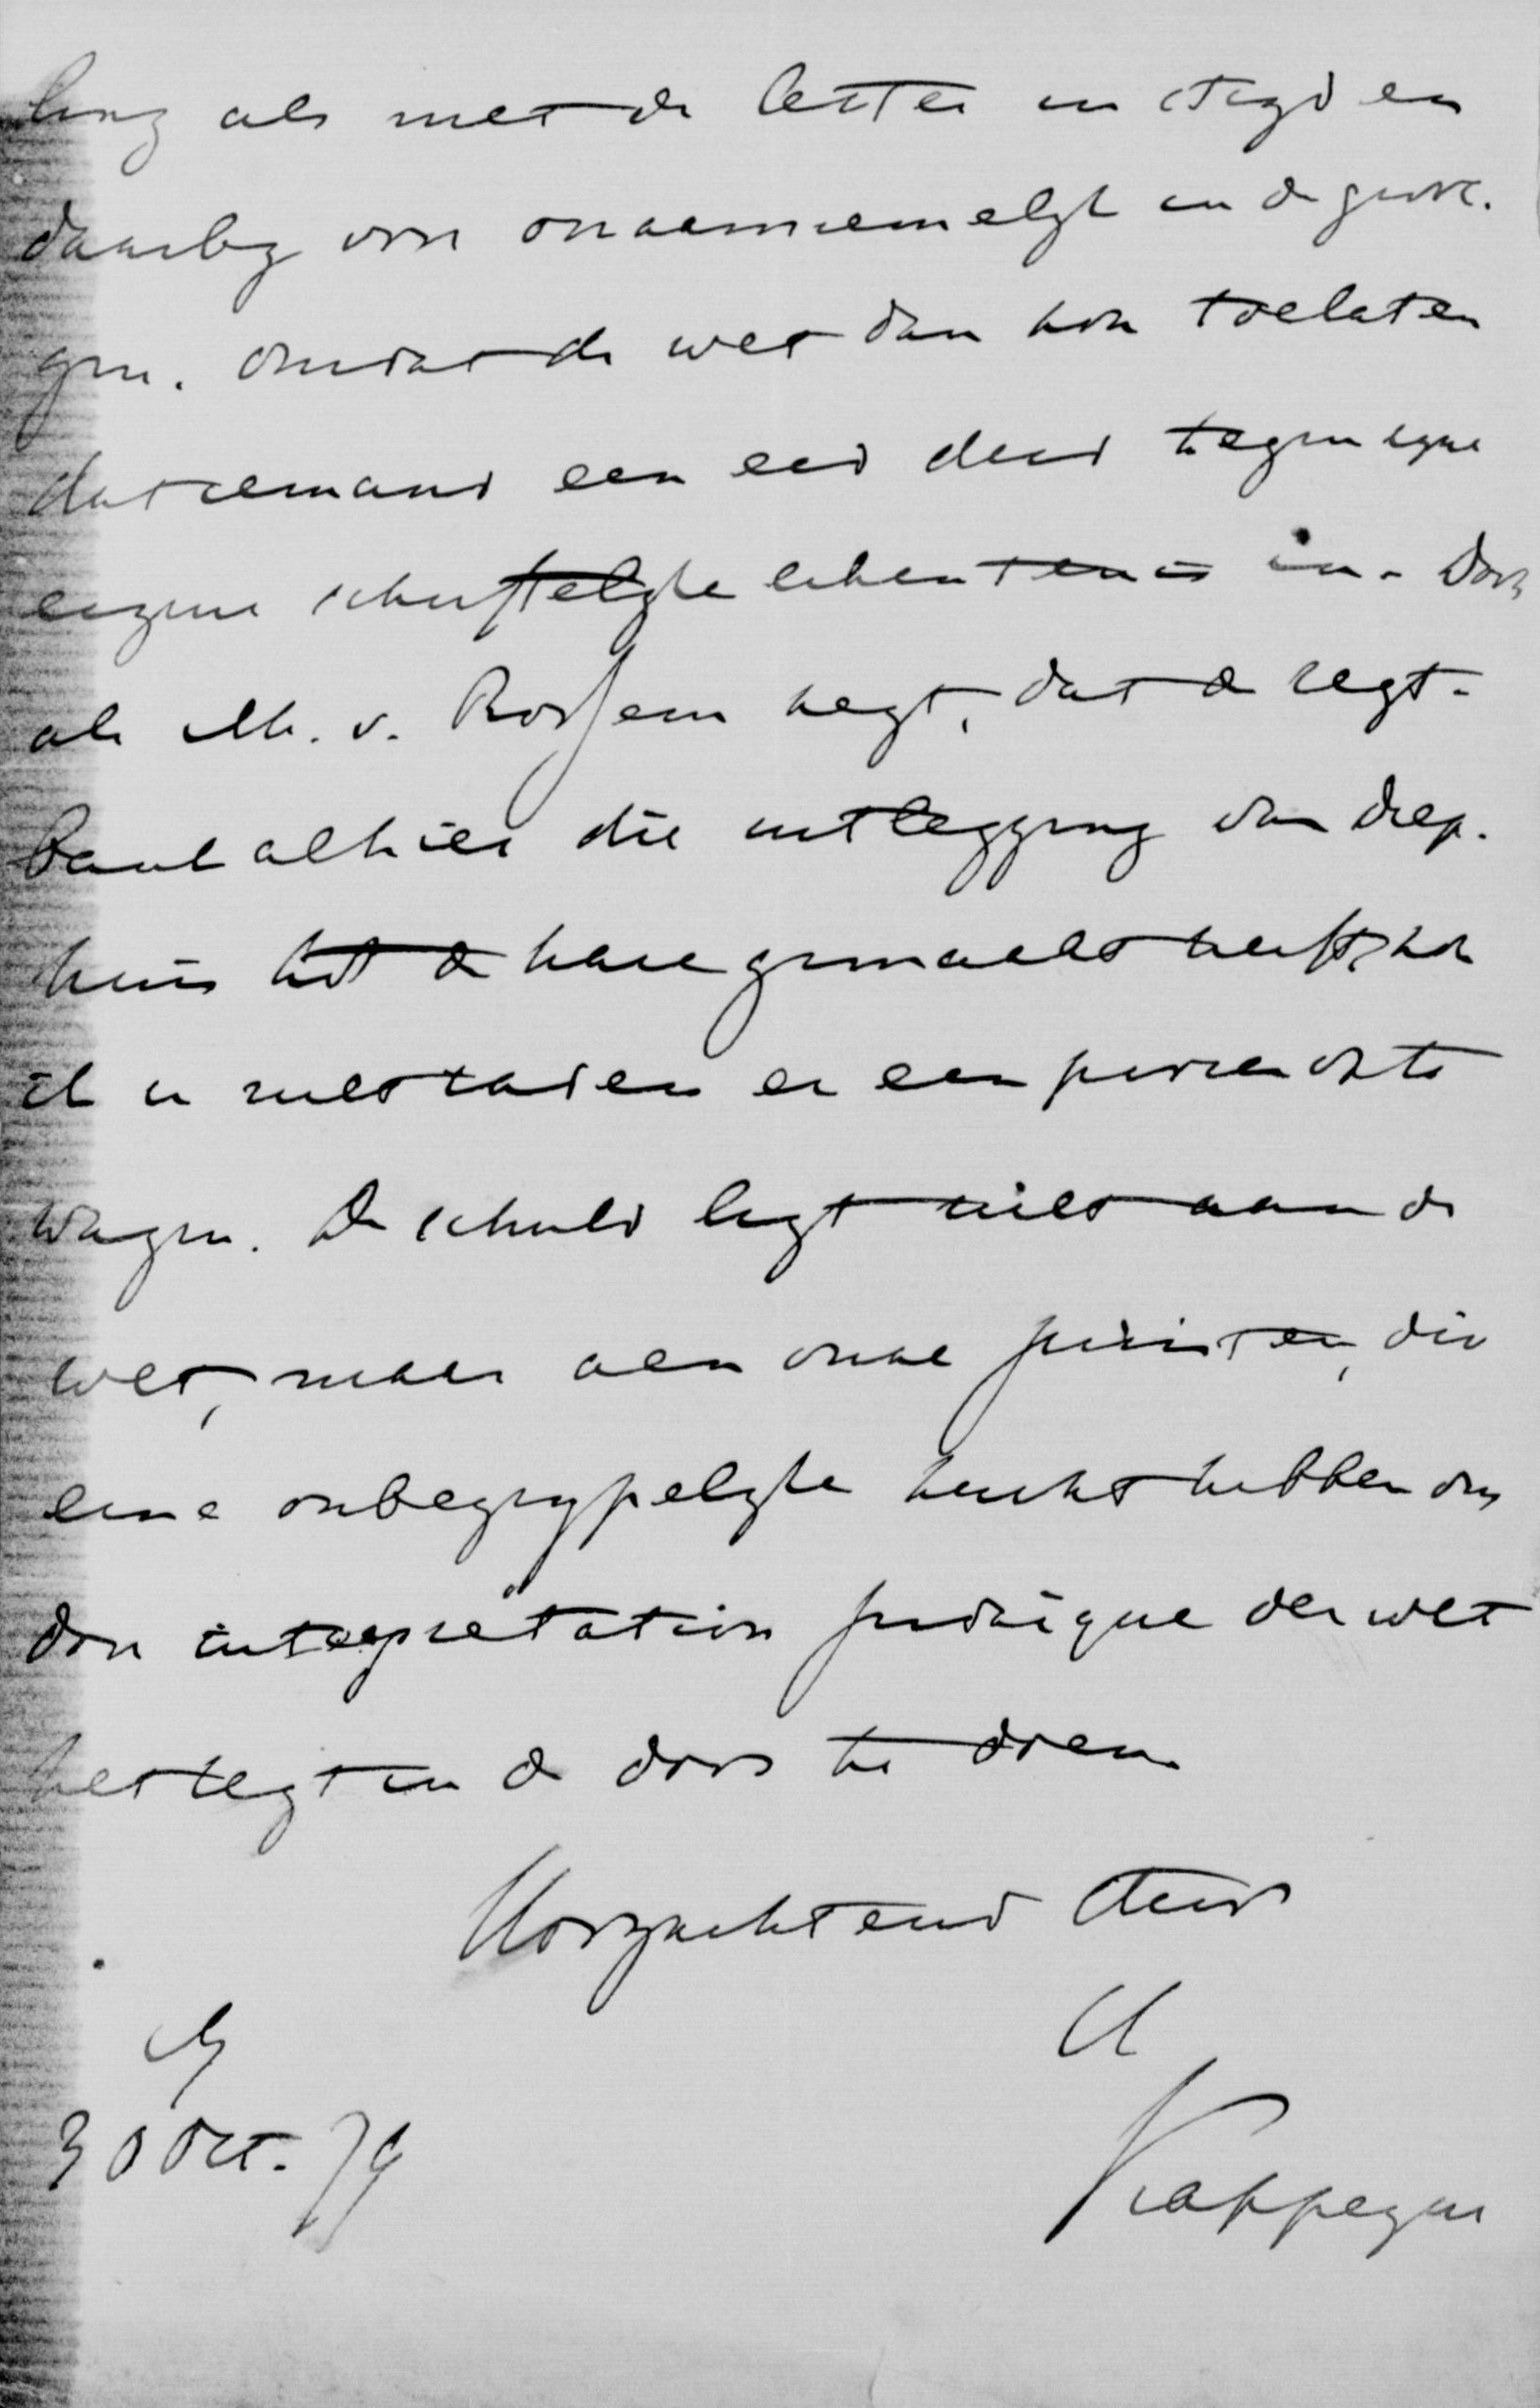 ling als met de letter in strijd en
daarbij voor onaannemelijk in de gevol-
gen. omdat de wet dan zou toelaten
dat iemand een eed deed tegen zijne
eigene schriftelijke erkentenis in. Doch
als Mr. v. Rossem zegt, dat de regt-
bank alhier die uitlegging van Diep-
huis tot de hare gemaakt heeft, zou
ik u niet raden er een proces op te
wagen. De schuld ligt niet aan de
wet, maar aan onze juristen, die
eene onbegrijpelijke zucht hebben om
door interprétation judaïque der wet
het regt in de doos te doen
Hoogachtend steeds
U
Kappeyne
30 Oct. 79